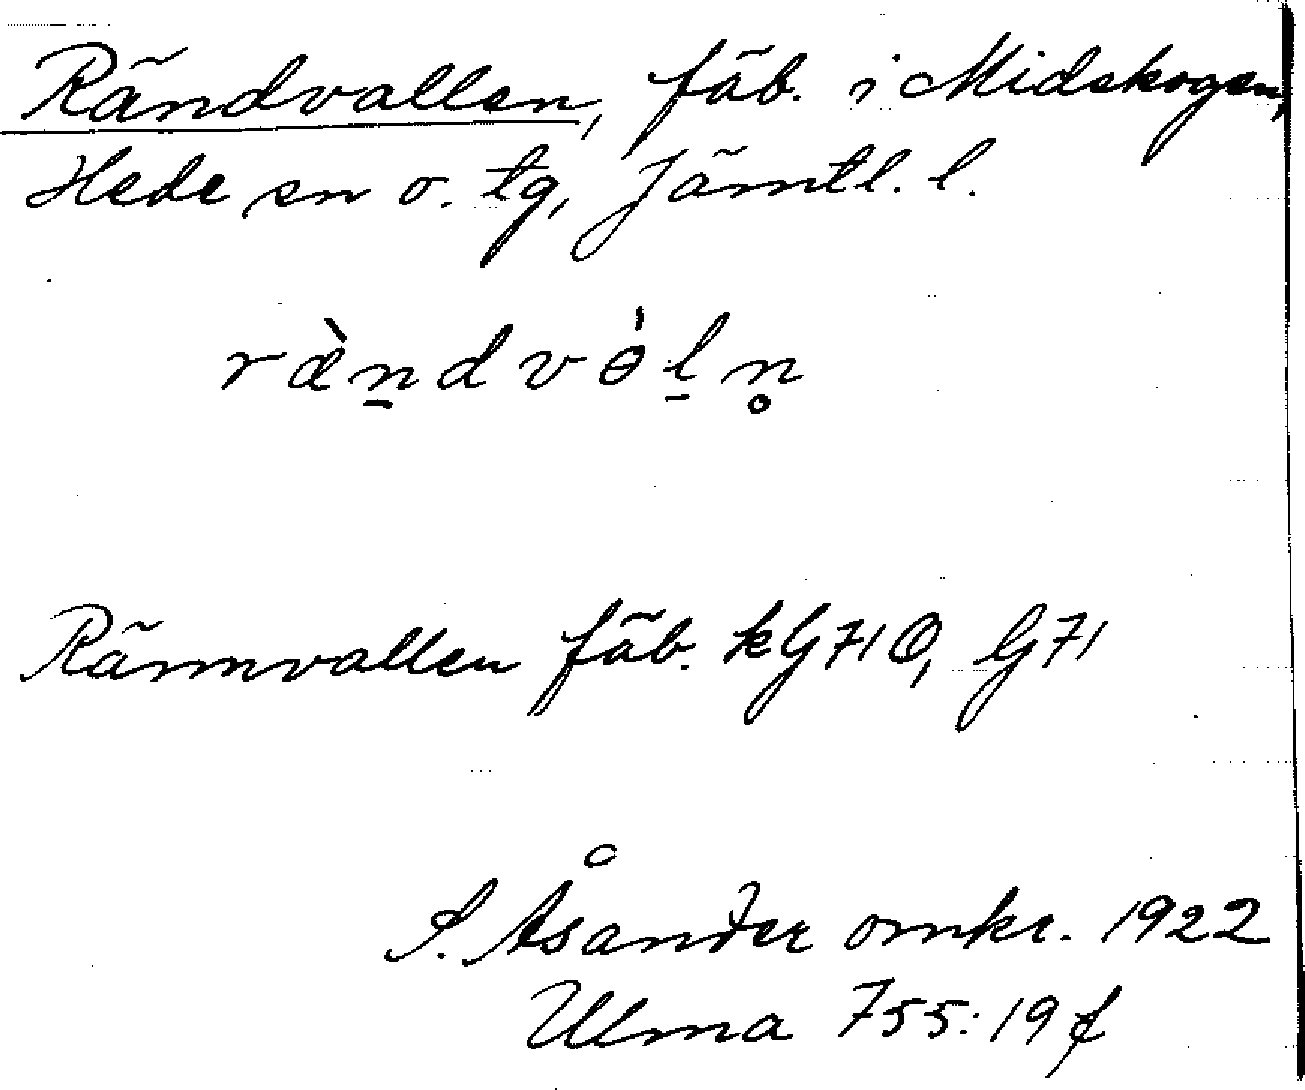 Rändvallen, fäb. i Midskogen,
Hede sn o. tg, Jämtl. l.
ræ̀n̠dvө̀l̠n̥
Rämnvallen fäb. kG71Ö, G71
S. Åsander omkr. 1922
Ulma 755:19 f